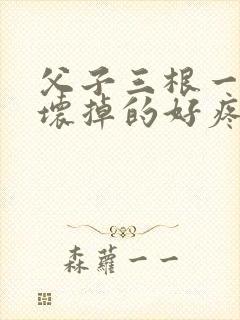 父子三根一
壞掉的好疼
森蘿一一